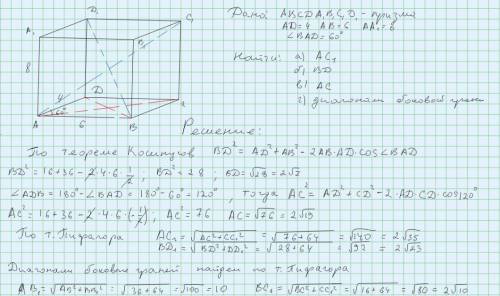 Дано: ABCDA₁B₁C₁D₁ - призма
AD=4 AB=6 AA₁=8
∠BAD=60°
Найти: а) AC₁
б) BD
в) AC
г) диагонали боковой грани
D₁
C₁
A₁
B₁
8
4
D
60°
A
6
B
Решение:
По теореме Косинусов BD² = AD²+AB² - 2AB·AD·cos∠BAD
BD² = 16+36 - 2·4·6·1/2, BD² = 28; BD=√28 = 2√7
∠ADB = 180° - ∠BAD = 180° - 60° = 120°, тогда AC² = AD² + CD² - 2·AD·CD·cos120°
AC² = 16+36 - 2·4·6·(-1/2), AC² = 76 AC = √76 = 2√19
По т. Пифагора AC₁ = √AC²+CC₁² = √76+64 = √140 = 2√35
BD₁ = √BD²+DD₁² = √28+64 = √92 = 2√23
Диагонали боковых граней найдем по т. Пифагора
AB₁ = √AB²+BB₁² = √36+64 = √100 = 10 BC₁ = √BC²+CC₁² = √16+64 = √80 = 2√10